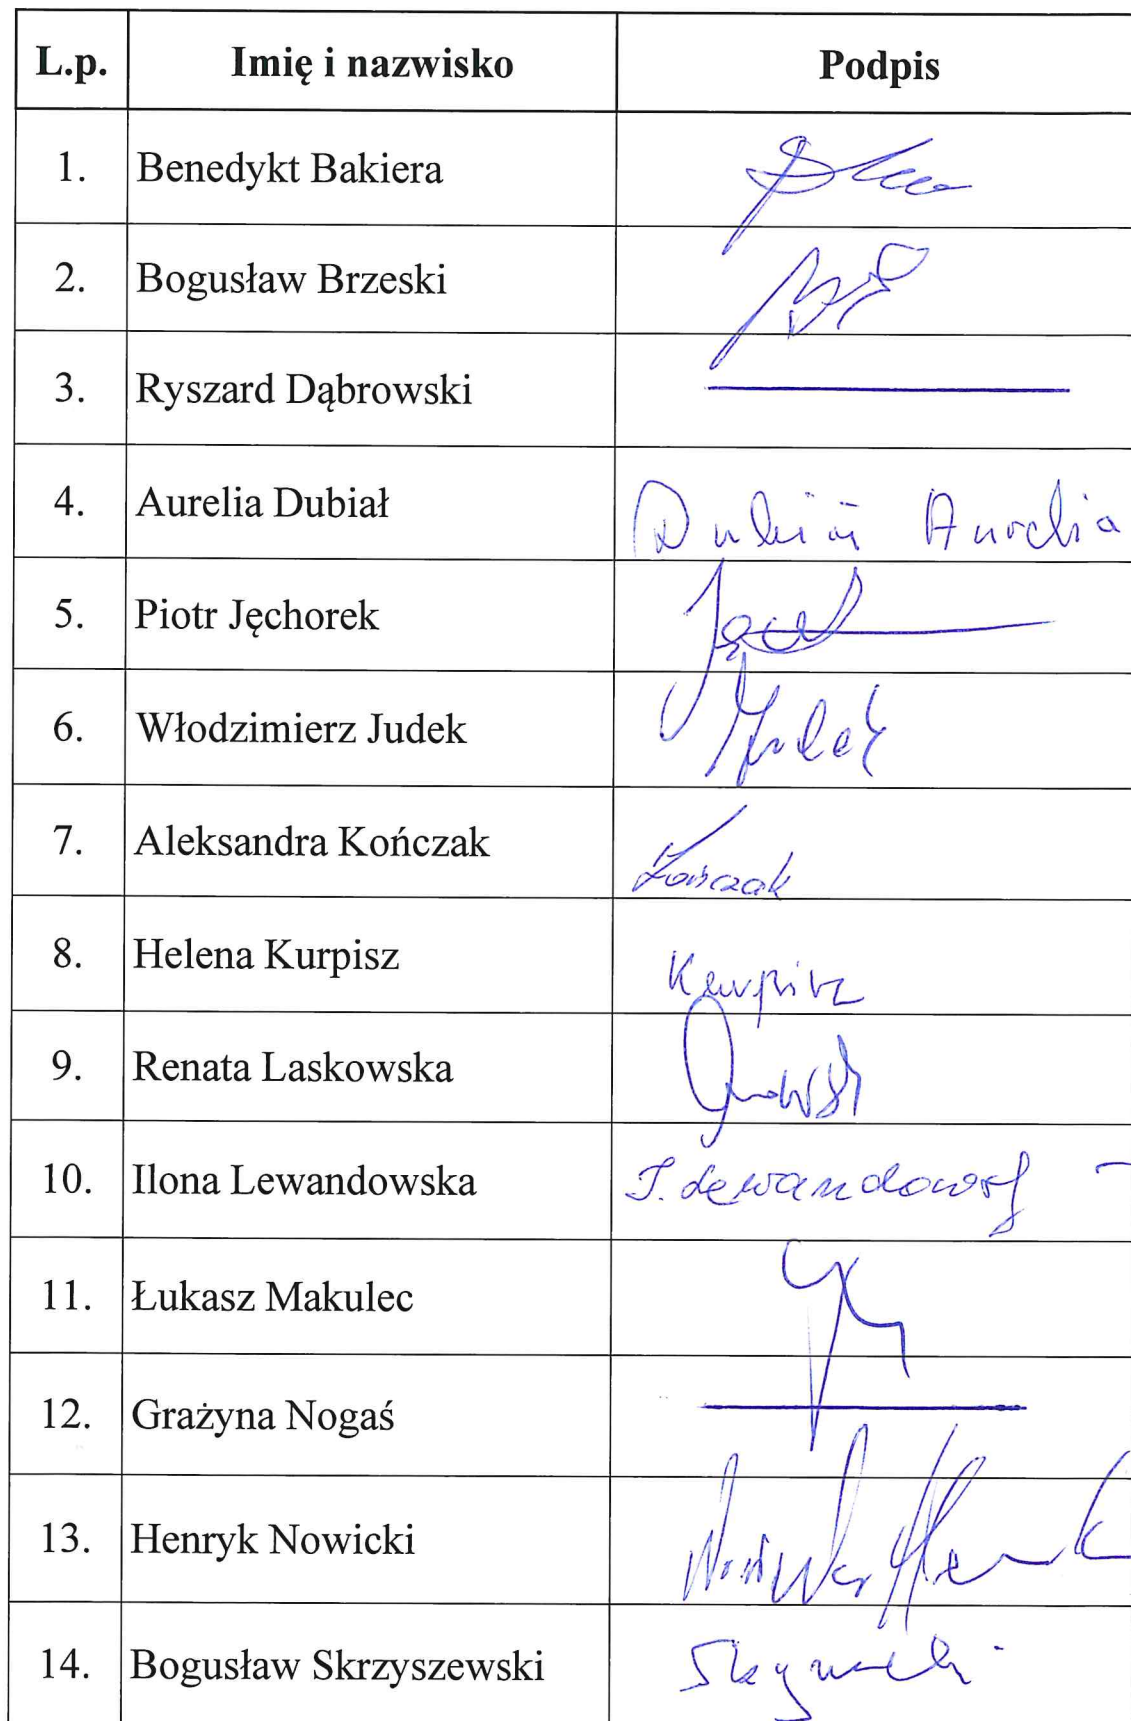 L.p. Imię i nazwisko Podpis
1. Benedykt Bakiera
2. Bogusław Brzeski
3. Ryszard Dąbrowski
4. Aurelia Dubiał Dubiał Aurelia
5. Piotr Jęchorek
6. Włodzimierz Judek Judek
7. Aleksandra Kończak Kończak
8. Helena Kurpisz Kurpisz
9. Renata Laskowska
10. Ilona Lewandowska I. Lewandowsk
11. Łukasz Makulec
12. Grażyna Nogaś
13. Henryk Nowicki
14. Bogusław Skrzyszewski